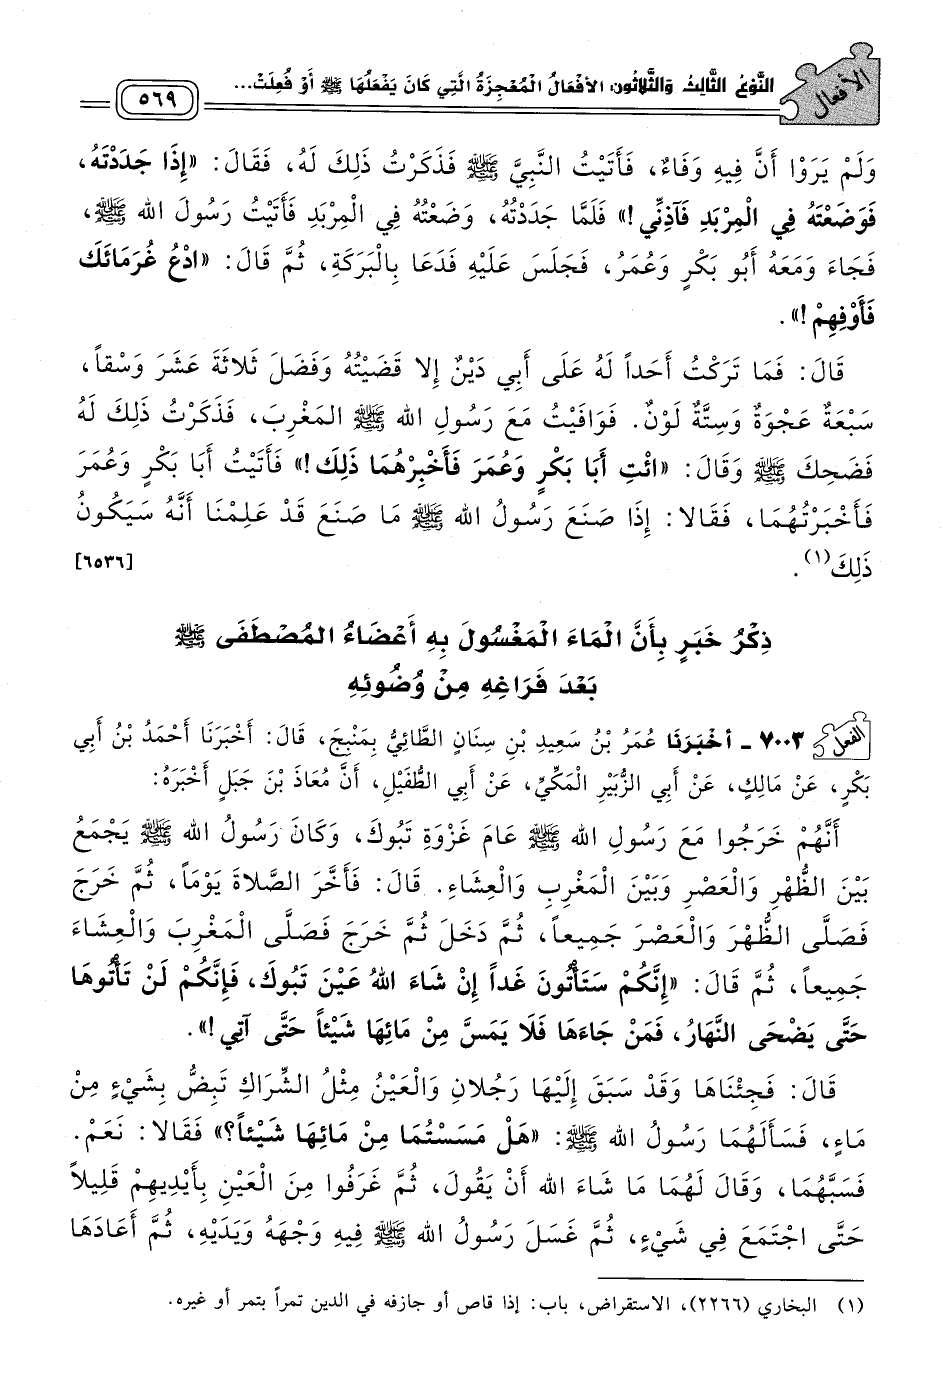 الأفعال
النَّوْعُ الثَّالِثُ وَالثَّلاثُونَ: الأَفْعَالُ المُعْجِزَةُ الَّتِي كَانَ يَفْعَلُهَا ﷺ أَوْ فُعِلَتْ...
٥٦٩
وَلَمْ يَرَوْا أَنَّ فِيهِ وَفَاءً، فَأَتَيْتُ النَّبِيَّ ﷺ فَذَكَرْتُ ذَلِكَ لَهُ، فَقَالَ: «إِذَا جَدَدْتَهُ،
فَوَضَعْتَهُ فِي الْمِرْبَدِ فَآذِنِّي!» فَلَمَّا جَدَدْتُهُ، وَضَعْتُهُ فِي الْمِرْبَدِ فَأَتَيْتُ رَسُولَ الله ﷺ،
فَجَاءَ وَمَعَهُ أَبُو بَكْرٍ وَعُمَرُ، فَجَلَسَ عَلَيْهِ فَدَعَا بِالْبَرَكَةِ، ثُمَّ قَالَ: «ادْعُ غُرَمَائَكَ
فَأَوْفِهِمْ!».
قَالَ: فَمَا تَرَكْتُ أَحَداً لَهُ عَلَى أَبِي دَيْنٌ إِلا قَضَيْتُهُ وَفَضَلَ ثَلاثَةَ عَشَرَ وَسْقاً،
سَبْعَةٌ عَجْوَةٌ وَسِتَّةٌ لَوْنٌ. فَوَافَيْتُ مَعَ رَسُولِ الله ﷺ المَغْرِبَ، فَذَكَرْتُ ذَلِكَ لَهُ
فَضَحِكَ ﷺ وَقَالَ: «ائْتِ أَبَا بَكْرٍ وَعُمَرَ فَأَخْبِرْهُمَا ذَلِكَ!» فَأَتَيْتُ أَبَا بَكْرٍ وَعُمَرَ
فَأَخْبَرْتُهُمَا، فَقَالا: إِذَا صَنَعَ رَسُولُ الله ﷺ مَا صَنَعَ قَدْ عَلِمْنَا أَنَّهُ سَيَكُونُ
ذَلِكَ(١). [٦٥٣٦]
ذِكْرُ خَبَرٍ بِأَنَّ الْمَاءَ الْمَغْسُولَ بِهِ أَعْضَاءُ المُصْطَفَى ﷺ
بَعْدَ فَرَاغِهِ مِنْ وُضُوئِهِ
الفعل ٧٠٠٣ - أخْبَرَنَا عُمَرُ بْنُ سَعِيدِ بْنِ سِنَانٍ الطَّائِيُّ بِمَنْبِجَ، قَالَ: أَخْبَرَنَا أَحْمَدُ بْنُ أَبِي
بَكْرٍ، عَنْ مَالِكٍ، عَنْ أَبِي الزُّبَيْرِ الْمَكِّيِّ، عَنْ أَبِي الطُّفَيْلِ، أَنَّ مُعَاذَ بْنَ جَبَلٍ أَخْبَرَهُ:
أَنَّهُمْ خَرَجُوا مَعَ رَسُولِ الله ﷺ عَامَ غَزْوَةِ تَبُوكَ، وَكَانَ رَسُولُ الله ﷺ يَجْمَعُ
بَيْنَ الظُّهْرِ وَالْعَصْرِ وَبَيْنَ الْمَغْرِبِ وَالْعِشَاءِ. قَالَ: فَأَخَّرَ الصَّلاةَ يَوْمَاً، ثُمَّ خَرَجَ
فَصَلَّى الظُّهْرَ وَالْعَصْرَ جَمِيعاً، ثُمَّ دَخَلَ ثُمَّ خَرَجَ فَصَلَّى الْمَغْرِبَ وَالْعِشَاءَ
جَمِيعاً، ثُمَّ قَالَ: «إِنَّكُمْ سَتَأْتُونَ غَداً إِنْ شَاءَ اللهُ عَيْنَ تَبُوكَ، فَإِنَّكُمْ لَنْ تَأْتُوهَا
حَتَّى يَضْحَى النَّهَارُ، فَمَنْ جَاءَهَا فَلا يَمَسَّ مِنْ مَائِهَا شَيْئاً حَتَّى آتِي!».
قَالَ: فَجِئْنَاهَا وَقَدْ سَبَقَ إِلَيْهَا رَجُلانِ وَالْعَيْنُ مِثْلُ الشِّرَاكِ تَبِضُّ بِشَيْءٍ مِنْ
مَاءٍ، فَسَأَلَهُمَا رَسُولُ الله ﷺ: «هَلْ مَسَسْتُمَا مِنْ مَائِهَا شَيْئاً؟» فَقَالا: نَعَمْ.
فَسَبَّهُمَا، وَقَالَ لَهُمَا مَا شَاءَ الله أَنْ يَقُولَ، ثُمَّ غَرَفُوا مِنَ الْعَيْنِ بِأَيْدِيهِمْ قَلِيلاً
حَتَّى اجْتَمَعَ فِي شَيْءٍ، ثُمَّ غَسَلَ رَسُولُ الله ﷺ فِيهِ وَجْهَهُ وَيَدَيْهِ، ثُمَّ أَعَادَهَا
(١) البخاري (٢٢٦٦)، الاستقراض، باب: إذا قاص أو جازفه في الدين تمراً بتمر أو غيره.